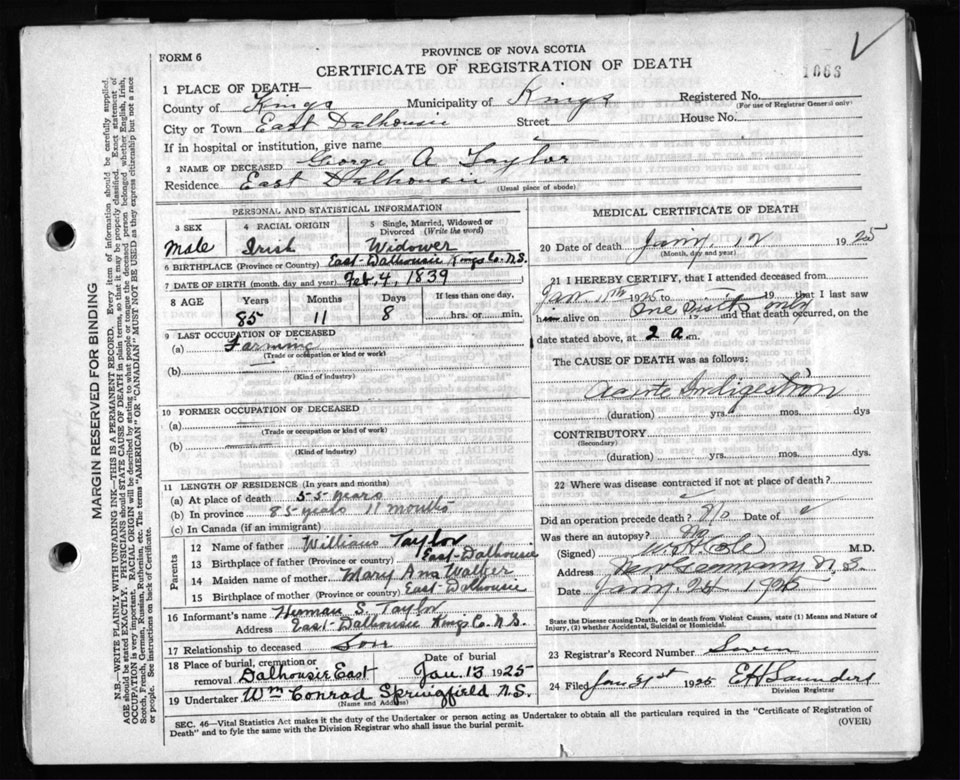 FORM 6
PROVINCE OF NOVA SCOTIA
CERTIFICATE OF REGISTRATION OF DEATH
1 PLACE OF DEATH—
County of Kings Municipality of Kings Registered No.
(For use of Registrar General only)
City or Town East Dalhousie Street House No.
If in hospital or institution, give name
2 NAME OF DECEASED George A Taylor
Residence East Dalhousie
(Usual place of abode)
PERSONAL AND STATISTICAL INFORMATION
3 SEX 4 RACIAL ORIGIN 5 Single, Married, Widowed or Divorced (Write the word)
Male Irish Widower
6 BIRTHPLACE (Province or Country) East-Dalhousie Kings Co. N.S.
7 DATE OF BIRTH (month, day and year) Feb, 4, 1839
8 AGE Years Months Days If less than one day,
85 11 8 hrs. or min.
9 LAST OCCUPATION OF DECEASED
(a) Farming
(Trade or occupation or kind or work)
(b)
(Kind of industry)
10 FORMER OCCUPATION OF DECEASED
(a)
(Trade or occupation or kind of work)
(b)
(Kind of industry)
11 LENGTH OF RESIDENCE (In years and months)
(a) At place of death 55 years
(b) In province 85 years 11 months
(c) In Canada (if an immigrant)
Parents
12 Name of father William Taylor
13 Birthplace of father (Province or country) East-Dalhousie
14 Maiden name of mother Mary Ann Walker
15 Birthplace of mother (Province or country) East-Dalhousie
16 Informant's name Herman S. Taylor
Address East-Dalhousie Kings Co. N.S.
17 Relationship to deceased Son
18 Place of burial, cremation or removal Dalhousie East Date of burial Jan. 13, 1925
19 Undertaker Wm Conrad Springfield N.S.
(Name and Address)
MEDICAL CERTIFICATE OF DEATH
20 Date of death Jany. 12 1925
(Month, day and year)
21 I HEREBY CERTIFY, that I attended deceased from
Jan 11th 1925 to 19 that I last saw
him alive on One visit only 19 and that death occurred, on
date stated above, at 2 a.m.
The CAUSE OF DEATH was as follows:
Acute Indigestion
(duration) yrs. mos. dys
CONTRIBUTORY
(Secondary)
(duration) yrs. mos. dys.
22 Where was disease contracted if not at place of death?
Did an operation precede death? No Date of
Was there an autopsy? No
(Signed) W.H. Cole M.D.
Address New Germany N.S.
Date Jany. 24 1925
State the Disease causing Death, or in death from Violent Causes, state (1) Means and Nature of
Injury, (2) whether Accidental, Suicidal or Homicidal.
23 Registrar's Record Number Seven
24 Filed Jan 31st 1925 E H Saunders
Division Registrar
SEC. 46—Vital Statistics Act makes it the duty of the Undertaker or person acting as Undertaker to obtain all the particulars required in the "Certificate of Registration of
Death" and to fyle the same with the Division Registrar who shall issue the burial permit.
(OVER)
MARGIN RESERVED FOR BINDING
N.B.—WRITE PLAINLY WITH UNFADING INK—THIS IS A PERMANENT RECORD. Every item of information should be carefully supplied.
AGE should be stated EXACTLY. PHYSICIANS should STATE CAUSE OF DEATH in plain terms, so that it may be properly classified. Exact statement of
OCCUPATION is very important. RACIAL ORIGIN will be described by stating to what people or tongue the deceased person belonged whether English, Irish,
Scotch, French, German, Russian, Ruthenian, etc. The terms "AMERICAN" OR "CANADIAN" MUST NOT BE USED as they express citizenship but not a race
or people. See instructions on back of Certificate.